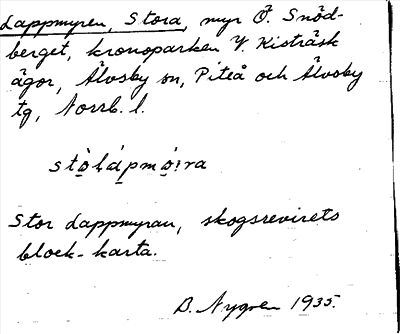 Lappmyren, Stora, myr Ö. Snöd-
berget, kronoparken V. Kisträsk
ägor, Älvsby sn, Piteå och Älvsby
tg, Norrb. l.
stò̱lápmo̱:ra
Stor Lappmyran, skogsrevirets
block-karta.
B. Nygren 1935.